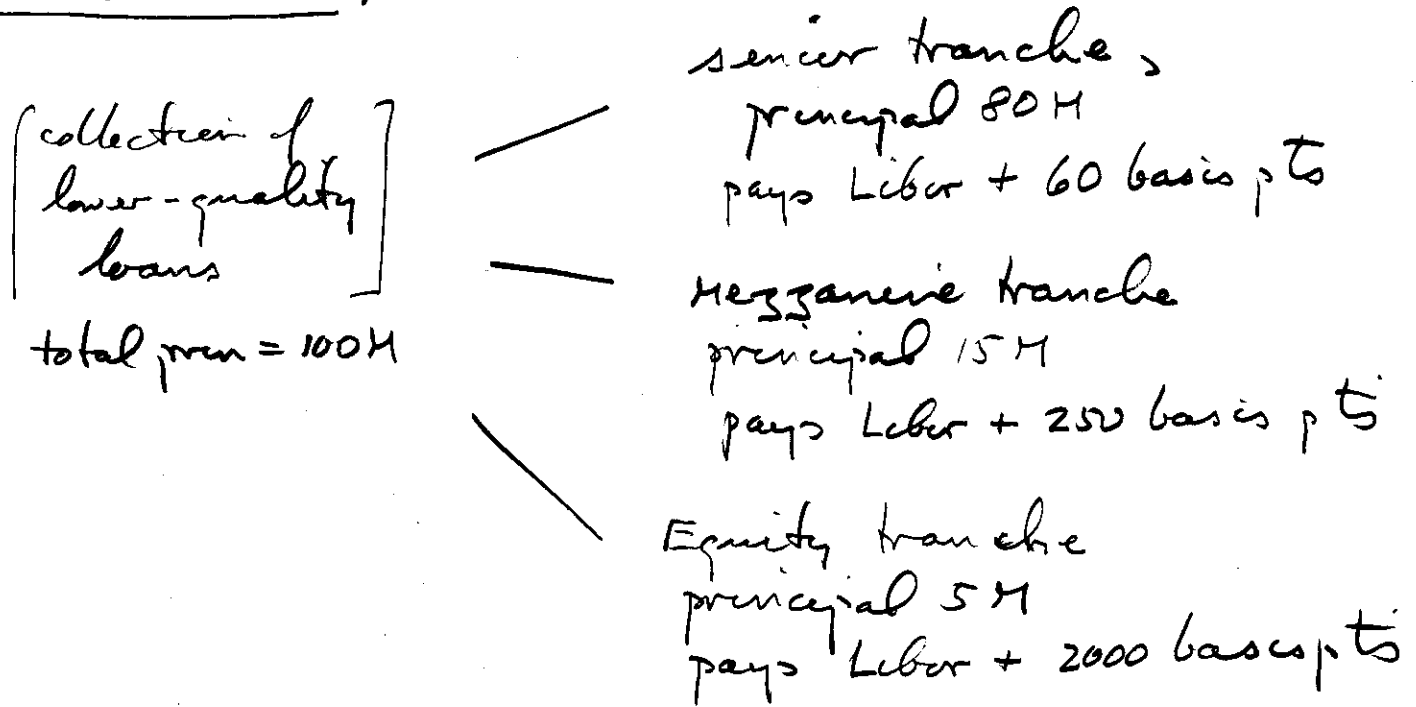 collection of
lower-quality
loans
total prin = 100M
senior tranche,
principal 80M
pays Libor + 60 basis pts
Mezzanine tranche
principal 15M
pays Libor + 250 basis pts
Equity tranche
principal 5M
pays Libor + 2000 basis pts